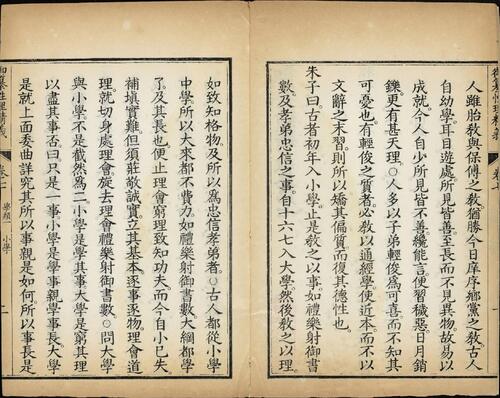 人雖胎教與保傅之教猶勝今日庠序鄉黨之教古人
自幼學耳目遊處所見皆善至長而不見異物故易以
成就今人自少所見皆不善纔能言便習穢惡日月銷
鑠更有甚天理○人多以子弟輕俊爲可喜而不知其
可憂也有輕俊之質者必教以通經學使近本而不以
文辭之末習則所以矯其偏質而復其德性也
朱子曰古者初年入小學止是教之以事如禮樂射御書
數及孝弟忠信之事自十六七入大學然後教之以理
御纂性理精義
卷七
學類
小學
二
如致知格物及所以爲忠信孝弟者○古人都從小學
中學所以大來都不費力如禮樂射御書數大綱都學
了及其長也便止理會窮理致知功夫而今自小已失
補填實難但須莊敬誠實立其基本逐事逐物理會道
理就切身處理會旋去理會禮樂射御書數○問大學
與小學不是截然爲二小學是學其事大學是窮其理
以盡其事否曰只是一事小學是學事親學事長大學
是就上面委曲詳究其所以事親是如何所以事長是